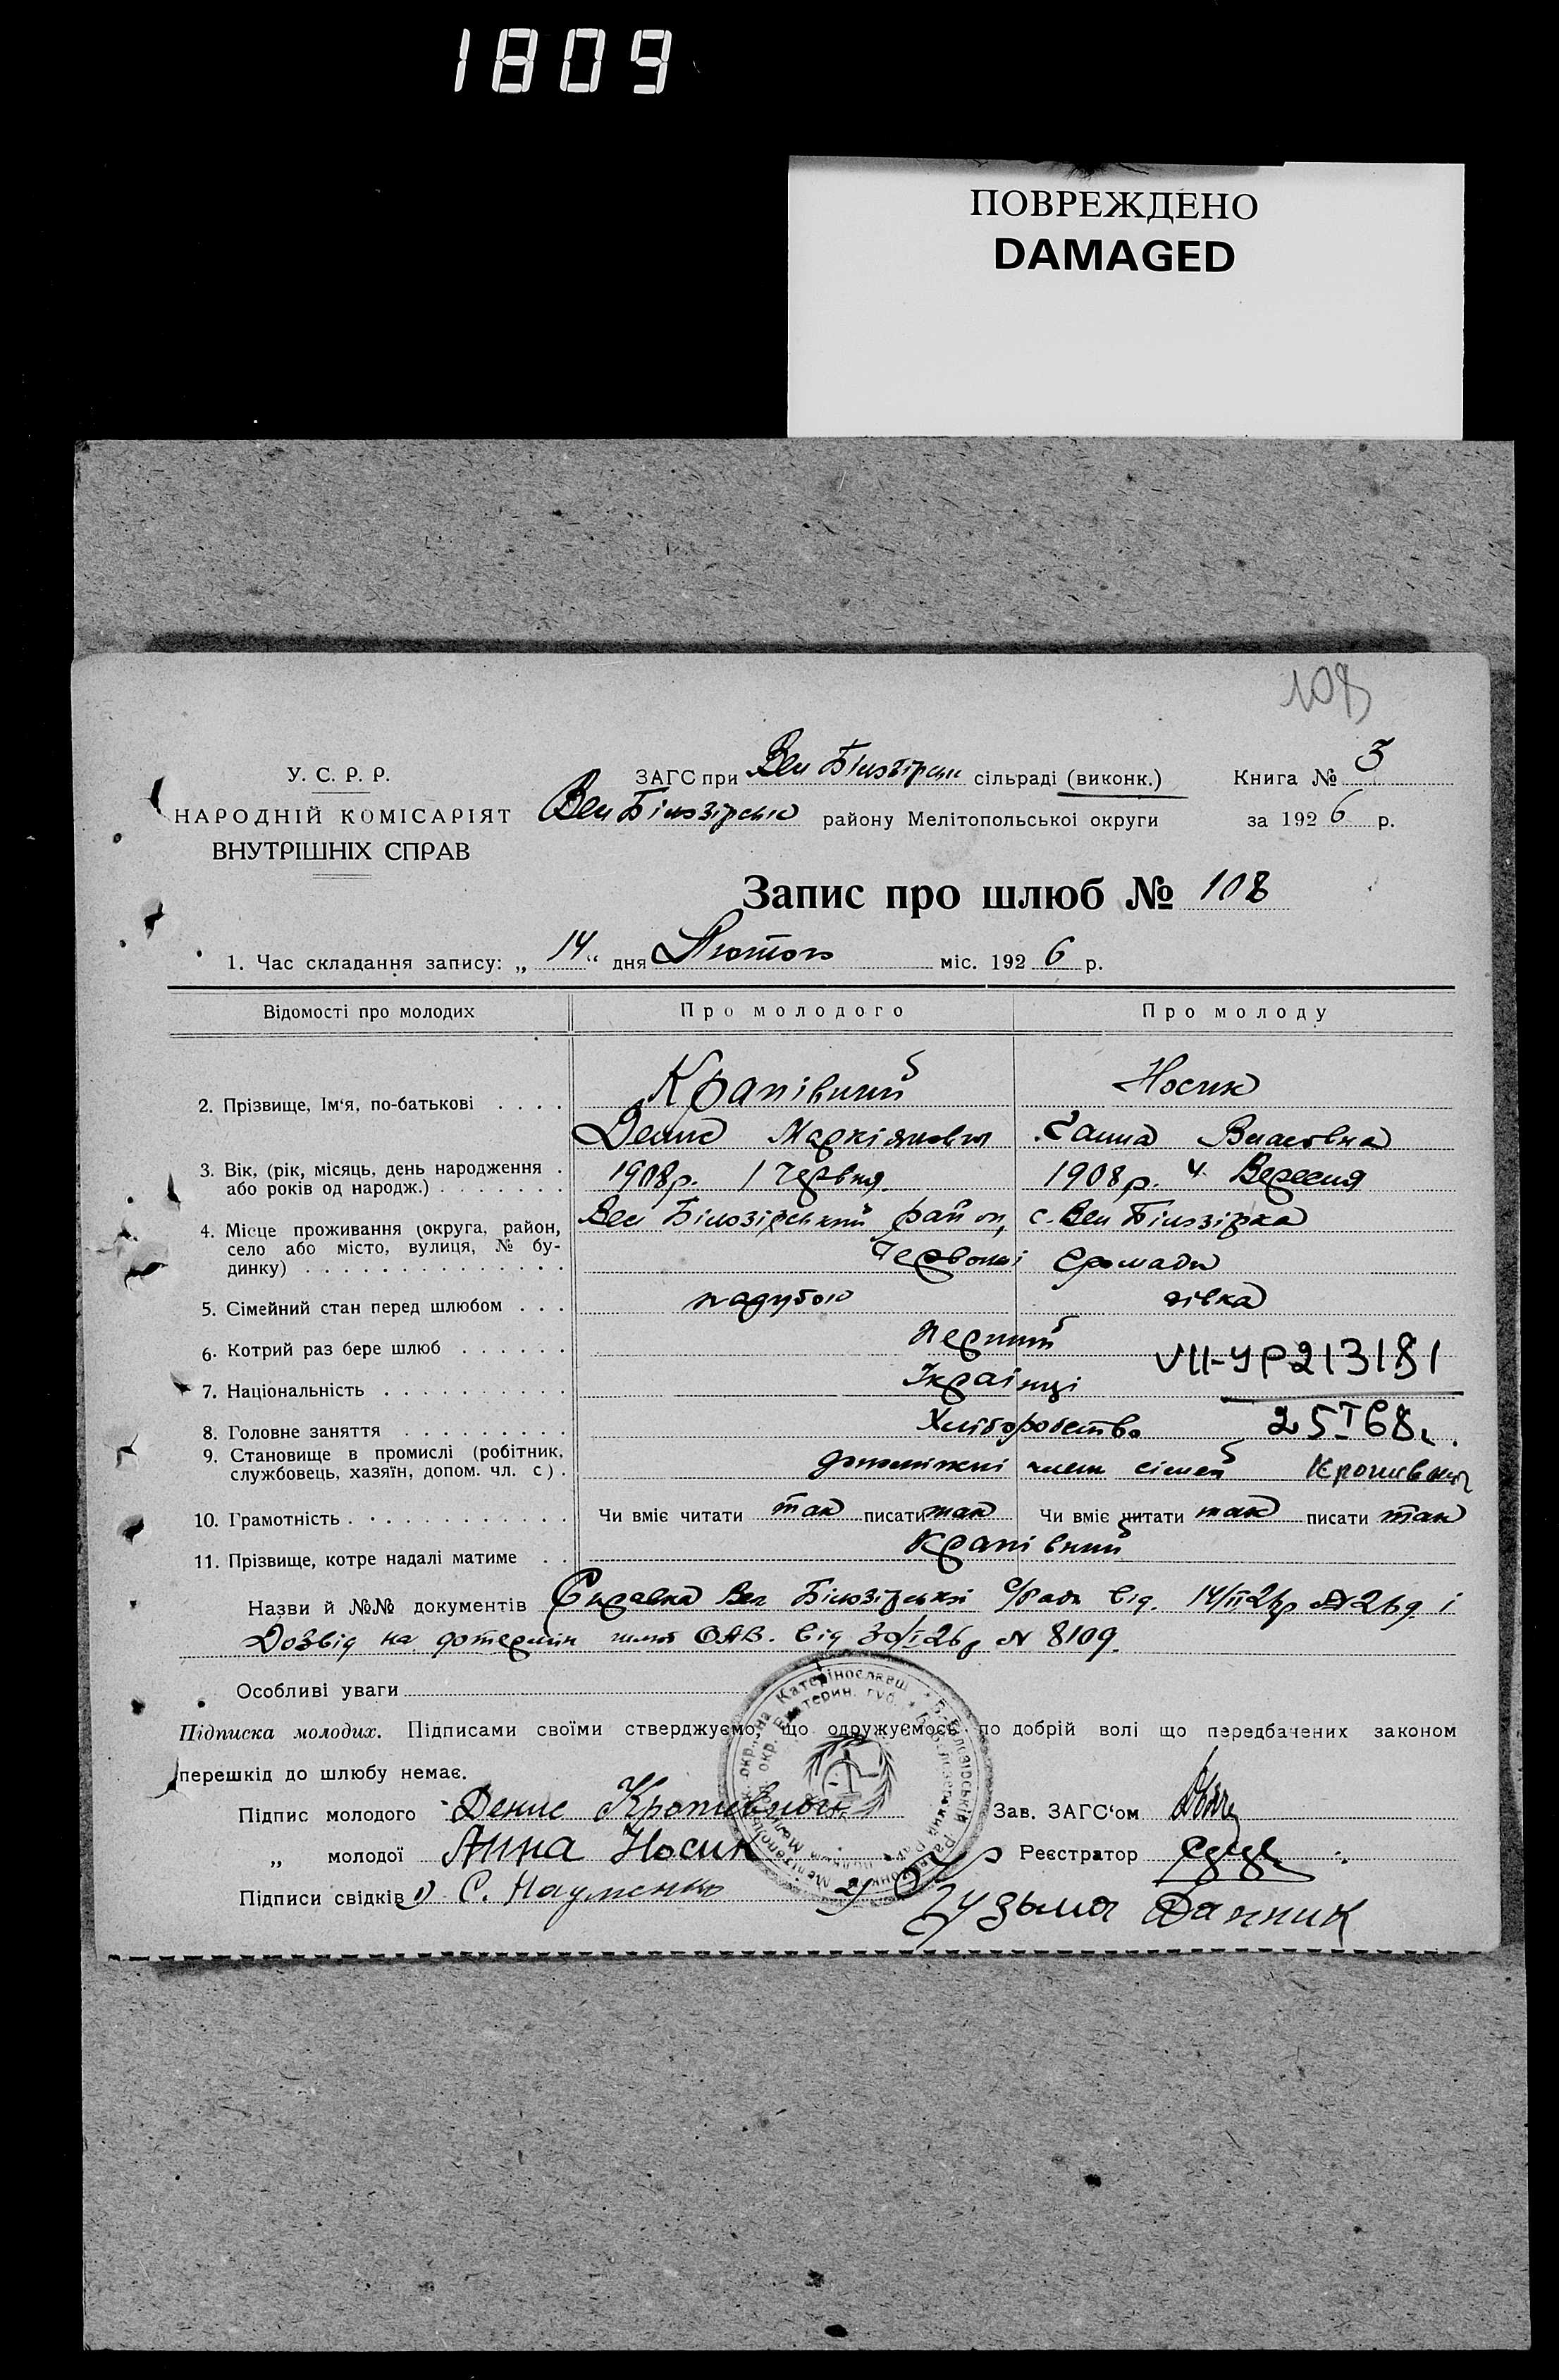 1809
ПОВРЕЖДЕНО
DAMAGED
108
У. С. Р. Р.
НАРОДНІЙ КОМІСАРІЯТ
ВНУТРІШНІХ СПРАВ
ЗАГС при Вел Білозірськ сільраді (виконк.)
Вел Білозірськ району Мелітопольської округи
Книга № 3
за 1926 р.
Запис про шлюб № 108
1. Час складання запису: „ 14 “ дня Лютого міс. 1926 р.
Відомості про молодих Про молодого Про молоду
2. Прізвище, Ім‘я, по-батькові . . . . Крапівний Носик
Денис Маркіянович Ганна Власовна
3. Вік, (рік, місяць, день народження . 1908 р. 1 Червня 1908 р. 4 Вересня
або років од народж.) . . . . . . .
4. Місце проживання (округа, район, Вел Білозірський район, с. Вел Білозірка
село або місто, вулиця, № бу-
динку) . . . . . . . . . . . . . . Червоної Громади
5. Сімейний стан перед шлюбом . . . парубок дівка
6. Котрий раз бере шлюб . . . . . . перший
VII-УР213181
7. Національність . . . . . . . . . . Українці
8. Головне заняття . . . . . . . . . Хліборобство 25 I 68г.
9. Становище в промислі (робітник,
службовець, хазяїн, допом. чл. с) . допоміжні член сімей
10. Грамотність . . . . . . . . . . . . Чи вміє читати так писати так Чи вміє читати так писати так
11. Прізвище, котре надалі матиме . . Крапівний
Назви й №№ документів Справка Вел Білозірської с/ради від. 14/II-26р № 269 і
Дозвід на дотермін шлюб ОАВ. від 30/I 26р № 8109
Особливі уваги
Підписка молодих. Підписами своїми стверджуємо, що одружуємось по добрій волі що передбачених законом
перешкід до шлюбу немає.
Підпис молодого Денис Кропивный Зав. ЗАГС‘ом
„ молодої Анна Носик Реєстратор
Підписи свідків 1) С. Науменко 2)